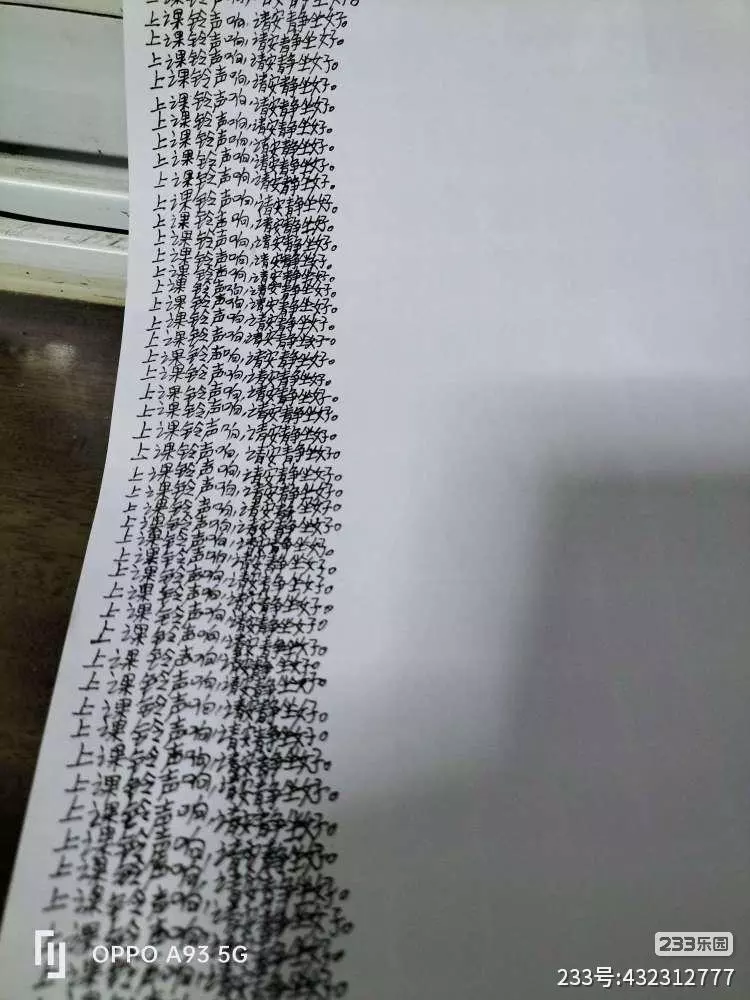 上课铃声响,请安静坐好。
上课铃声响,请安静坐好。
上课铃声响,请安静坐好。
上课铃声响,请安静坐好。
上课铃声响,请安静坐好。
上课铃声响,请安静坐好。
上课铃声响,请安静坐好。
上课铃声响,请安静坐好。
上课铃声响,请安静坐好。
上课铃声响,请安静坐好。
上课铃声响,请安静坐好。
上课铃声响,请安静坐好。
上课铃声响,请安静坐好。
上课铃声响,请安静坐好。
上课铃声响,请安静坐好。
上课铃声响,请安静坐好。
上课铃声响,请安静坐好。
上课铃声响,请安静坐好。
上课铃声响,请安静坐好。
上课铃声响,请安静坐好。
上课铃声响,请安静坐好。
上课铃声响,请安静坐好。
上课铃声响,请安静坐好。
上课铃声响,请安静坐好。
上课铃声响,请安静坐好。
上课铃声响,请安静坐好。
上课铃声响,请安静坐好。
上课铃声响,请安静坐好。
上课铃声响,请安静坐好。
上课铃声响,请安静坐好。
上课铃声响,请安静坐好。
上课铃声响,请安静坐好。
上课铃声响,请安静坐好。
上课铃声响,请安静坐好。
上课铃声响,请安静坐好。
上课铃声响,请安静坐好。
上课铃声响,请安静坐好。
上课铃声响,请安静坐好。
上课铃声响,请安静坐好。
上课铃声响,请安静坐好。
上课铃声响,请安静坐好。
上课铃声响,请安静坐好。
上课铃声响,请安静坐好。
上课铃声响,请安静坐好。
上课铃声响,请安静坐好。
OPPO A93 5G
233乐园
233号:432312777